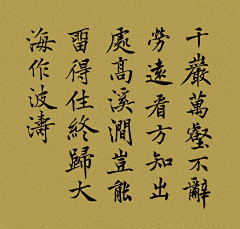 千巖萬壑不辭
勞遠看方知出
處高溪澗豈能
留得住終歸大
海作波濤